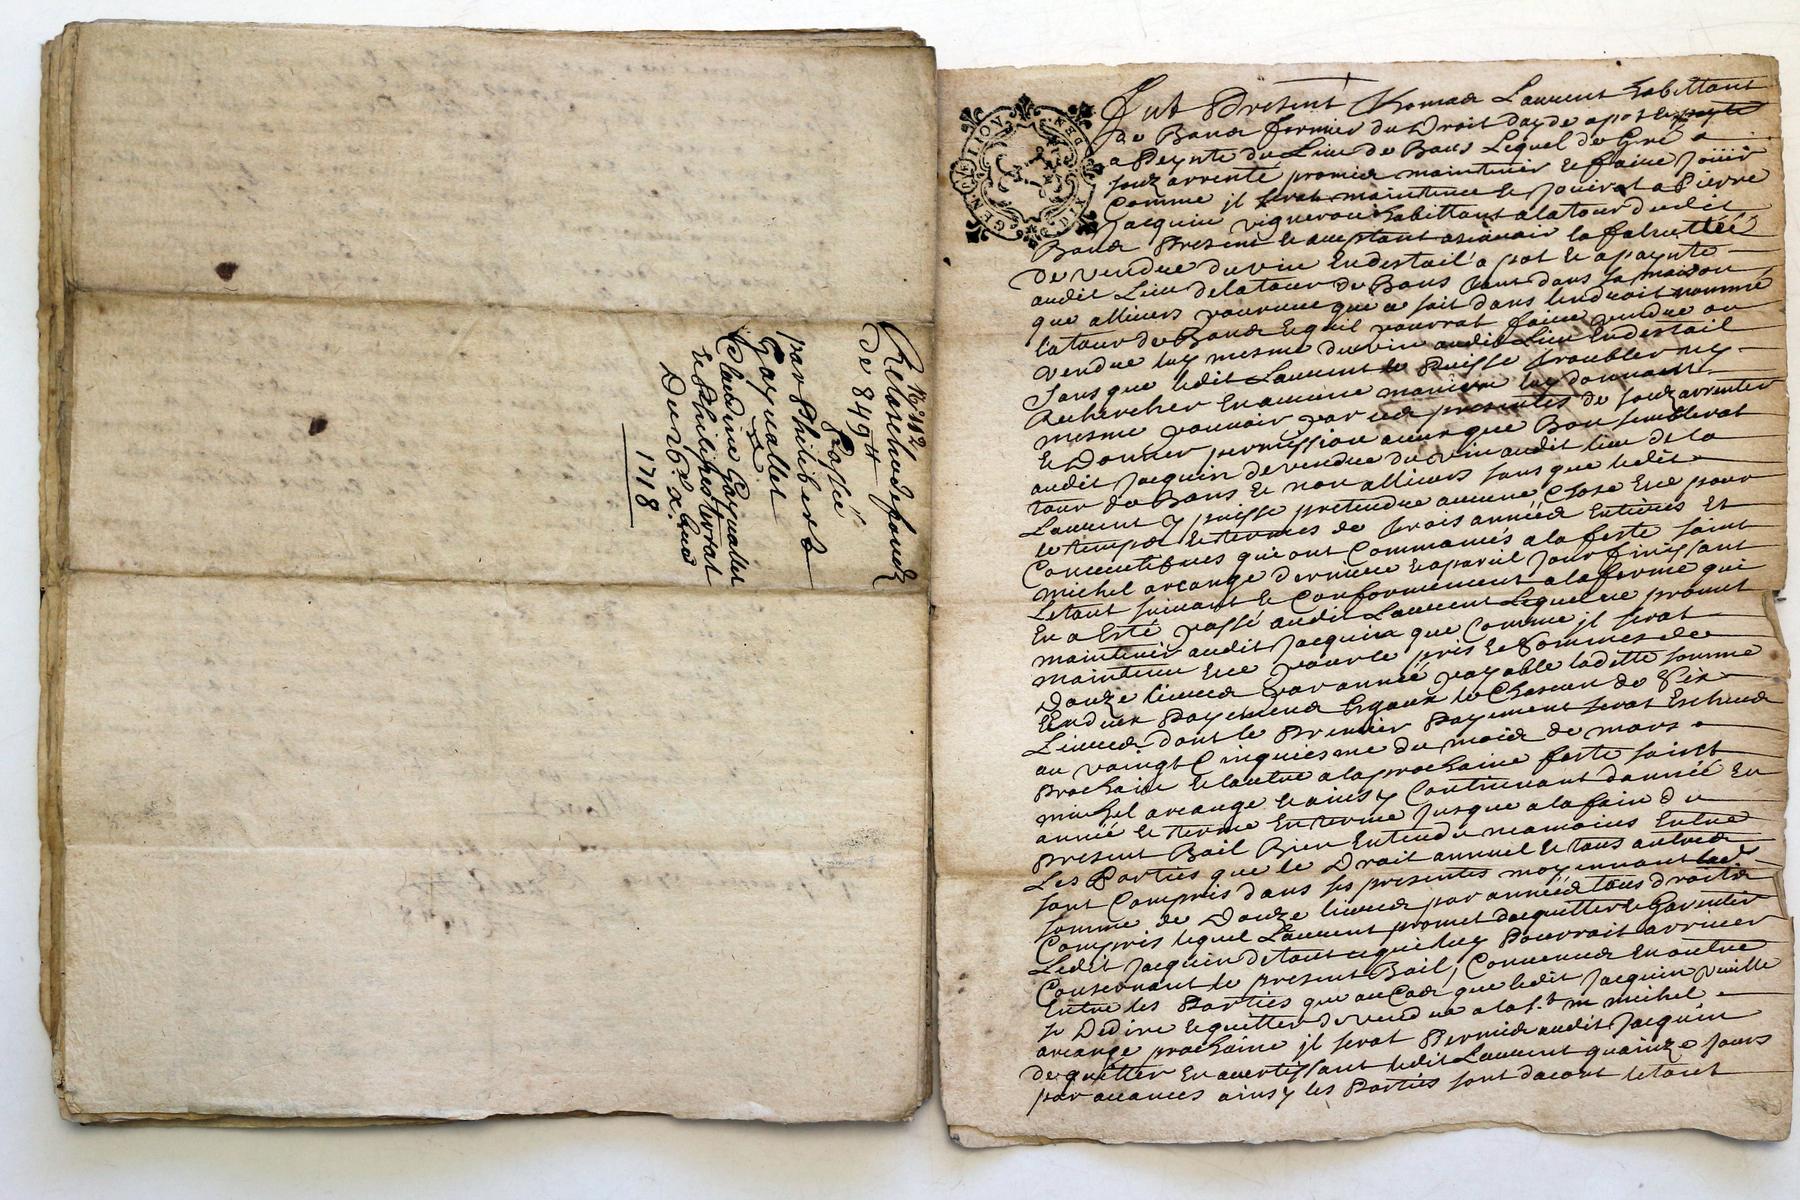 N° 182
de 849 ₶
passé
par Philibert
Gayuallet
Claudine Gayuallet
Du 26e xbre
1718
GEN DE LION
Fut Present Thomas Laurent habittant
de Baus fermier du Droit dayde a pot
a Peynte du Lieu de Baus Lequel de Gré a
souz arrenté promes maintenir et faire Joüir
Comme jl serat maintenu et Jouirat a Pierre
Jacquin vigneron habittant a latour dudit
Baus Present et aceptant asçauoir la faculttée
de vendre du vin En destail a pot et a paynte
audit Lieu de latour de Baus tant dans sa maison
que allieurs pourueu que ce soit dans lendroit nommé
latour de Baus Et quil pourrat faire vendre ou
vendre luy mesme du vin audit Lieu En destail
sans que ledit Laurent le Puisse troubler ny
Rechercher En aucune maniere luy donnant
mesme pouuoir par ces presentes de souz arrenter
Et Donner permission a ceux que Bon semblerat
audit Jacquin de vendre du vin audit lieu de la
tour de Baus Et non allieurs sans que ledit
Laurent y puisse pretendre aucune Chose Et ce pour
le temps Et termes de trois année Entieres Et
Consecutiues qui ont Commancés a la feste saint
michel arcange derniere Et a pareil Jour finissant
Le tout suiuant Et Conformement a la ferme qui
En a Esté passé audit Laurent Lequel ce promet
maintenir audit Jacquin que Comme jl serat
maintenu Et ce pour le pris Et sommes de
Douze liures par année payable ladette somme
En deux Payemens Egaux de Chascun de six
Liures dont le Premier Payement serat Escheus
au vaingt Cinquiesme du mois de mars
Prochain Et lautre a la prochaine feste saint
michel arcange Et ainsy Continuant dannée En
année Et terme En terme Jusque a la fain du
present Bail Bien Entendu neamoins Entre
Les Parties que le Droit annuel Et tous autres
sont Compris dans les presentes moyennant ladt
somme de Douze liures par année tous droits
Compris lequel Laurent promet dacquitter Et Garentir
Ledit Jacquin de tout ce qui luy Pourrait arriuer
Consernant le present Bail, Conuenus En outre
Entre les Parties que au Cas que ledit Jacquin veuille
se Dedire Et quitter de vendre a la st michel
arcange prochaine jl serat Permis audit Jacquin
de quitter En auertissant ledit Laurent quainze Jours
par auances ainsy les Parties sont dacort le tout